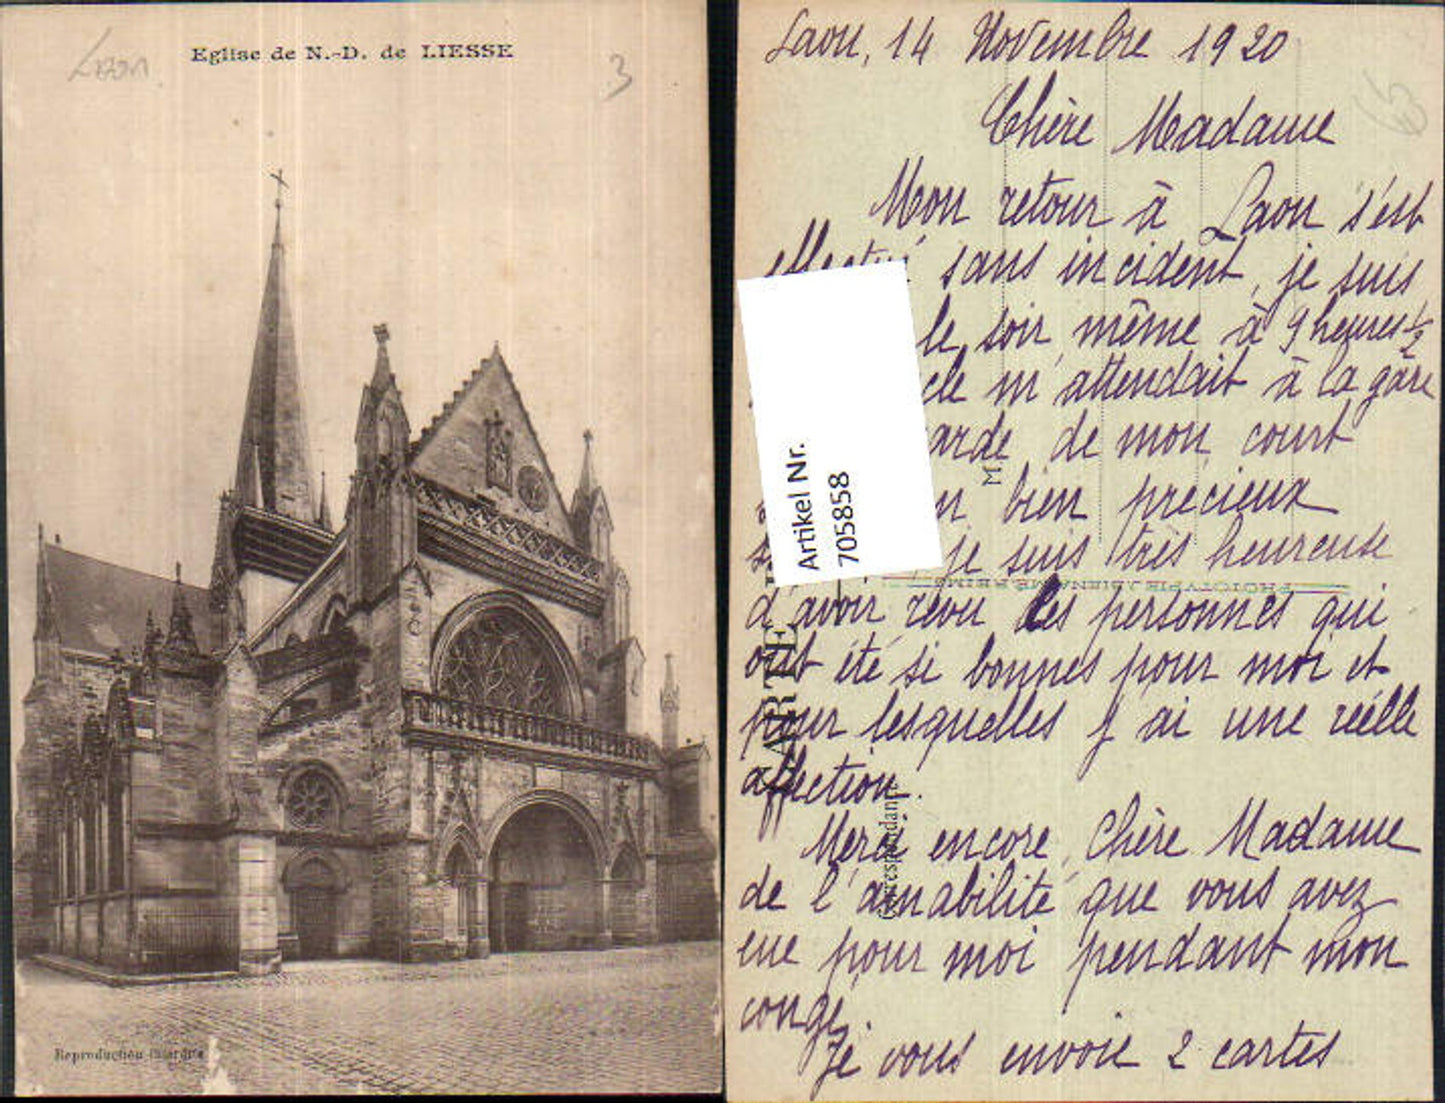 Laon
Eglise de N.-D. de LIESSE
3
Reproduction interdite
Laon, 14 Novembre 1920
Chère Madame
Mon retour à Laon s'est
effectué sans incident, je suis
le soir même à 9 heures 1/2
cle m'attendait à la gare
arde de mon court
bien précieux
je suis très heureuse
d'avoir revu les personnes qui
ont été si bonnes pour moi et
pour lesquelles j'ai une réelle
affection.
Merci encore, Chère Madame
de l'amabilité que vous avez
eue pour moi pendant mon
congé,
Je vous envoie 2 cartes
Artikel Nr.
705858
CARTE
Correspondance
M
PHOTOTYPIE J. BIENAIMÉ REIMS